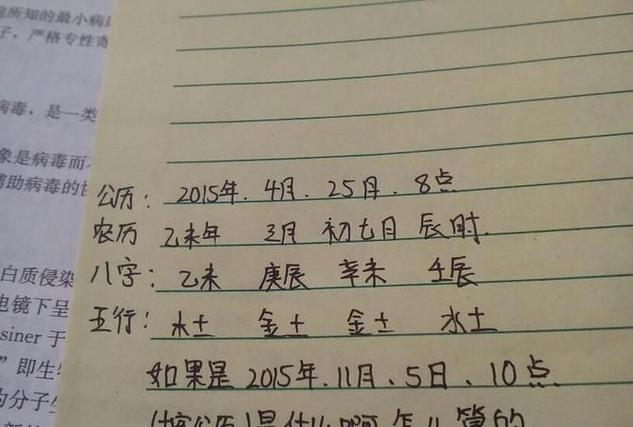 所知的最小病
子，严格专性寄
病毒，是一类
象是病毒而
助病毒的
公历：2015年.4月.25日.8点
农历 乙未年 三月 初七日 辰时.
八字：乙未 庚辰 辛未 壬辰
白质侵染
五行：水土 金土 金土 水土
电镜下呈
siner 于
如果是2015年.11月.5日.10点
”即生
为分子生
公历)是什么啊怎么算的